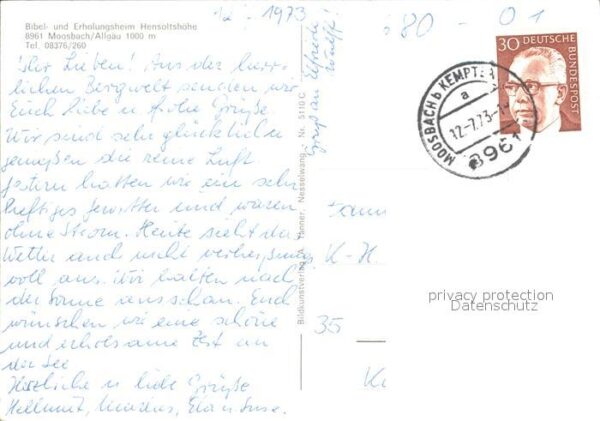 Bibel- und Erholungsheim Hensoltshöhe
8961 Moosbach/Allgäu 1000 m
Tel. 08376/260
12. 1973
Ihr Lieben! Aus der herr-
lichen Bergwelt senden wir
Euch liebe u. frohe Grüße.
Wir sind sehr glücklich u.
genießen die reine Luft.
Gestern hatten wir ein sehr
heftiges Gewitter und waren
ohne Strom. Heute sieht das
Wetter auch nicht verheißungs
voll aus. Wir halten nach
der Sonne ausschau. Euch
wünschen wir eine schöne
und erholsame Zeit an
der See
Herzliche u. liebe Grüße
Hellmut, Eva u. Suse.
Gruß an Elfriede
Bildkunstverlag A. Tanner, Nesselwang - Nr. 5110 C
680 - 01
30 DEUTSCHE BUNDESPOST
MOOSBACH b KEMPTEN
a
12.-7.73-1
8961
K-H
35
privacy protection
Datenschutz